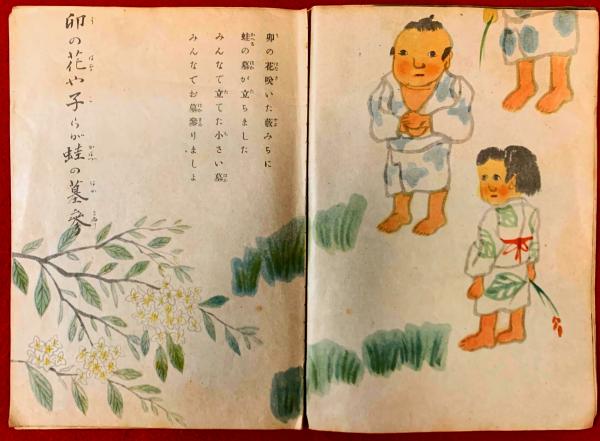 卯の花咲いた藪みちに
蛙の墓が立ちました
みんなで立てた小さい墓
みんなでお墓參りましよ
卯の花や子らが蛙の墓參